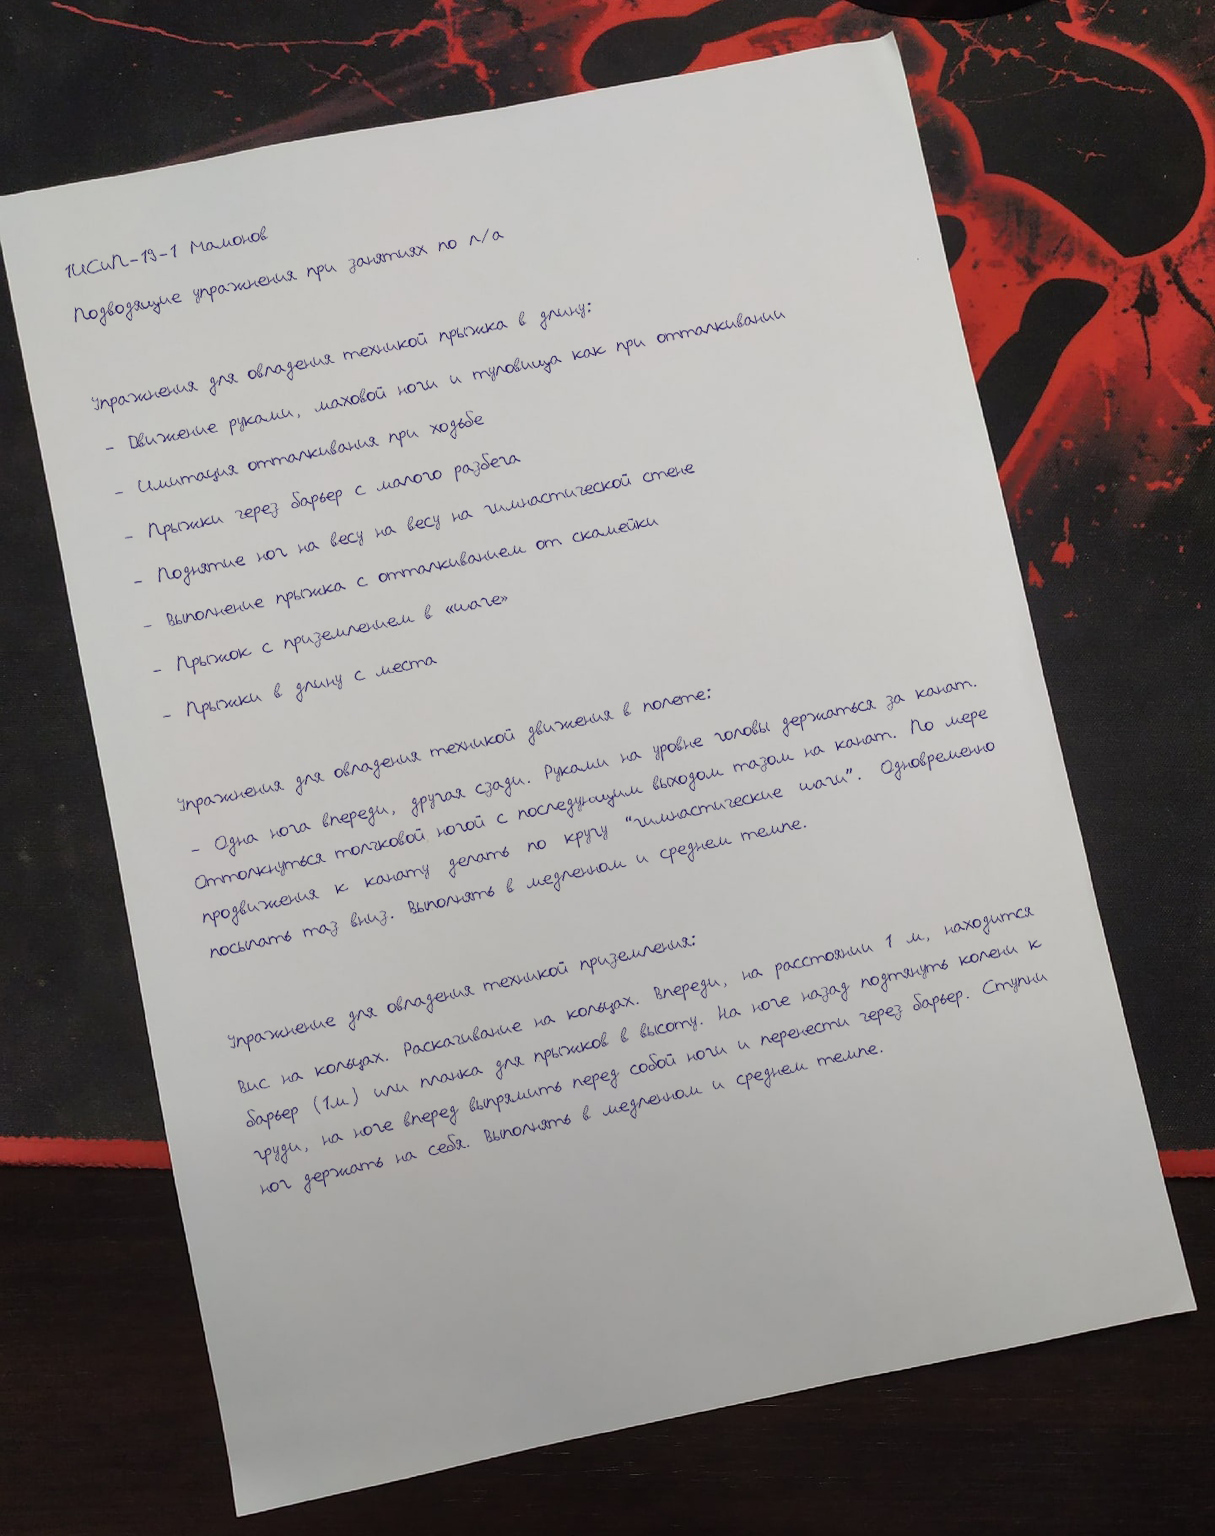 1ИСиП-19-1 Мамонов
Подводящие упражнения при занятиях по л/а
Упражнения для овладения техникой прыжка в длину:
- Движение руками, маховой ноги и туловища как при отталкивании
- Имитация отталкивания при ходьбе
- Прыжки через барьер с малого разбега
- Поднятие ног на весу на весу на гимнастической стене
- Выполнение прыжка с отталкиванием от скамейки
- Прыжок с приземлением в «шаге»
- Прыжки в длину с места
Упражнения для овладения техникой движения в полете:
- Одна нога впереди, другая сзади. Руками на уровне головы держаться за канат.
Оттолкнуться толчковой ногой с последующим выходом тазом на канат. По мере
продвижения к канату делать по кругу "гимнастические шаги". Одновременно
посылать таз вниз. Выполнять в медленном и среднем темпе.
Упражнение для овладения техникой приземления:
Вис на кольцах. Раскачивание на кольцах. Впереди, на расстоянии 1 м, находится
барьер (1м) или планка для прыжков в высоту. На ноге назад подтянуть колени к
груди, на ноге вперед выпрямить перед собой ноги и перенести через барьер. Ступни
ног держать на себя. Выполнять в медленном и среднем темпе.